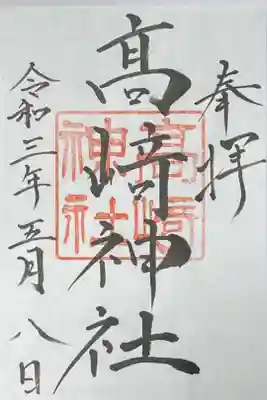 奉拝
髙﨑神社
髙﨑神社
令和三年五月八日